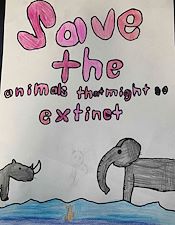 Save
the
animals that might
extinct